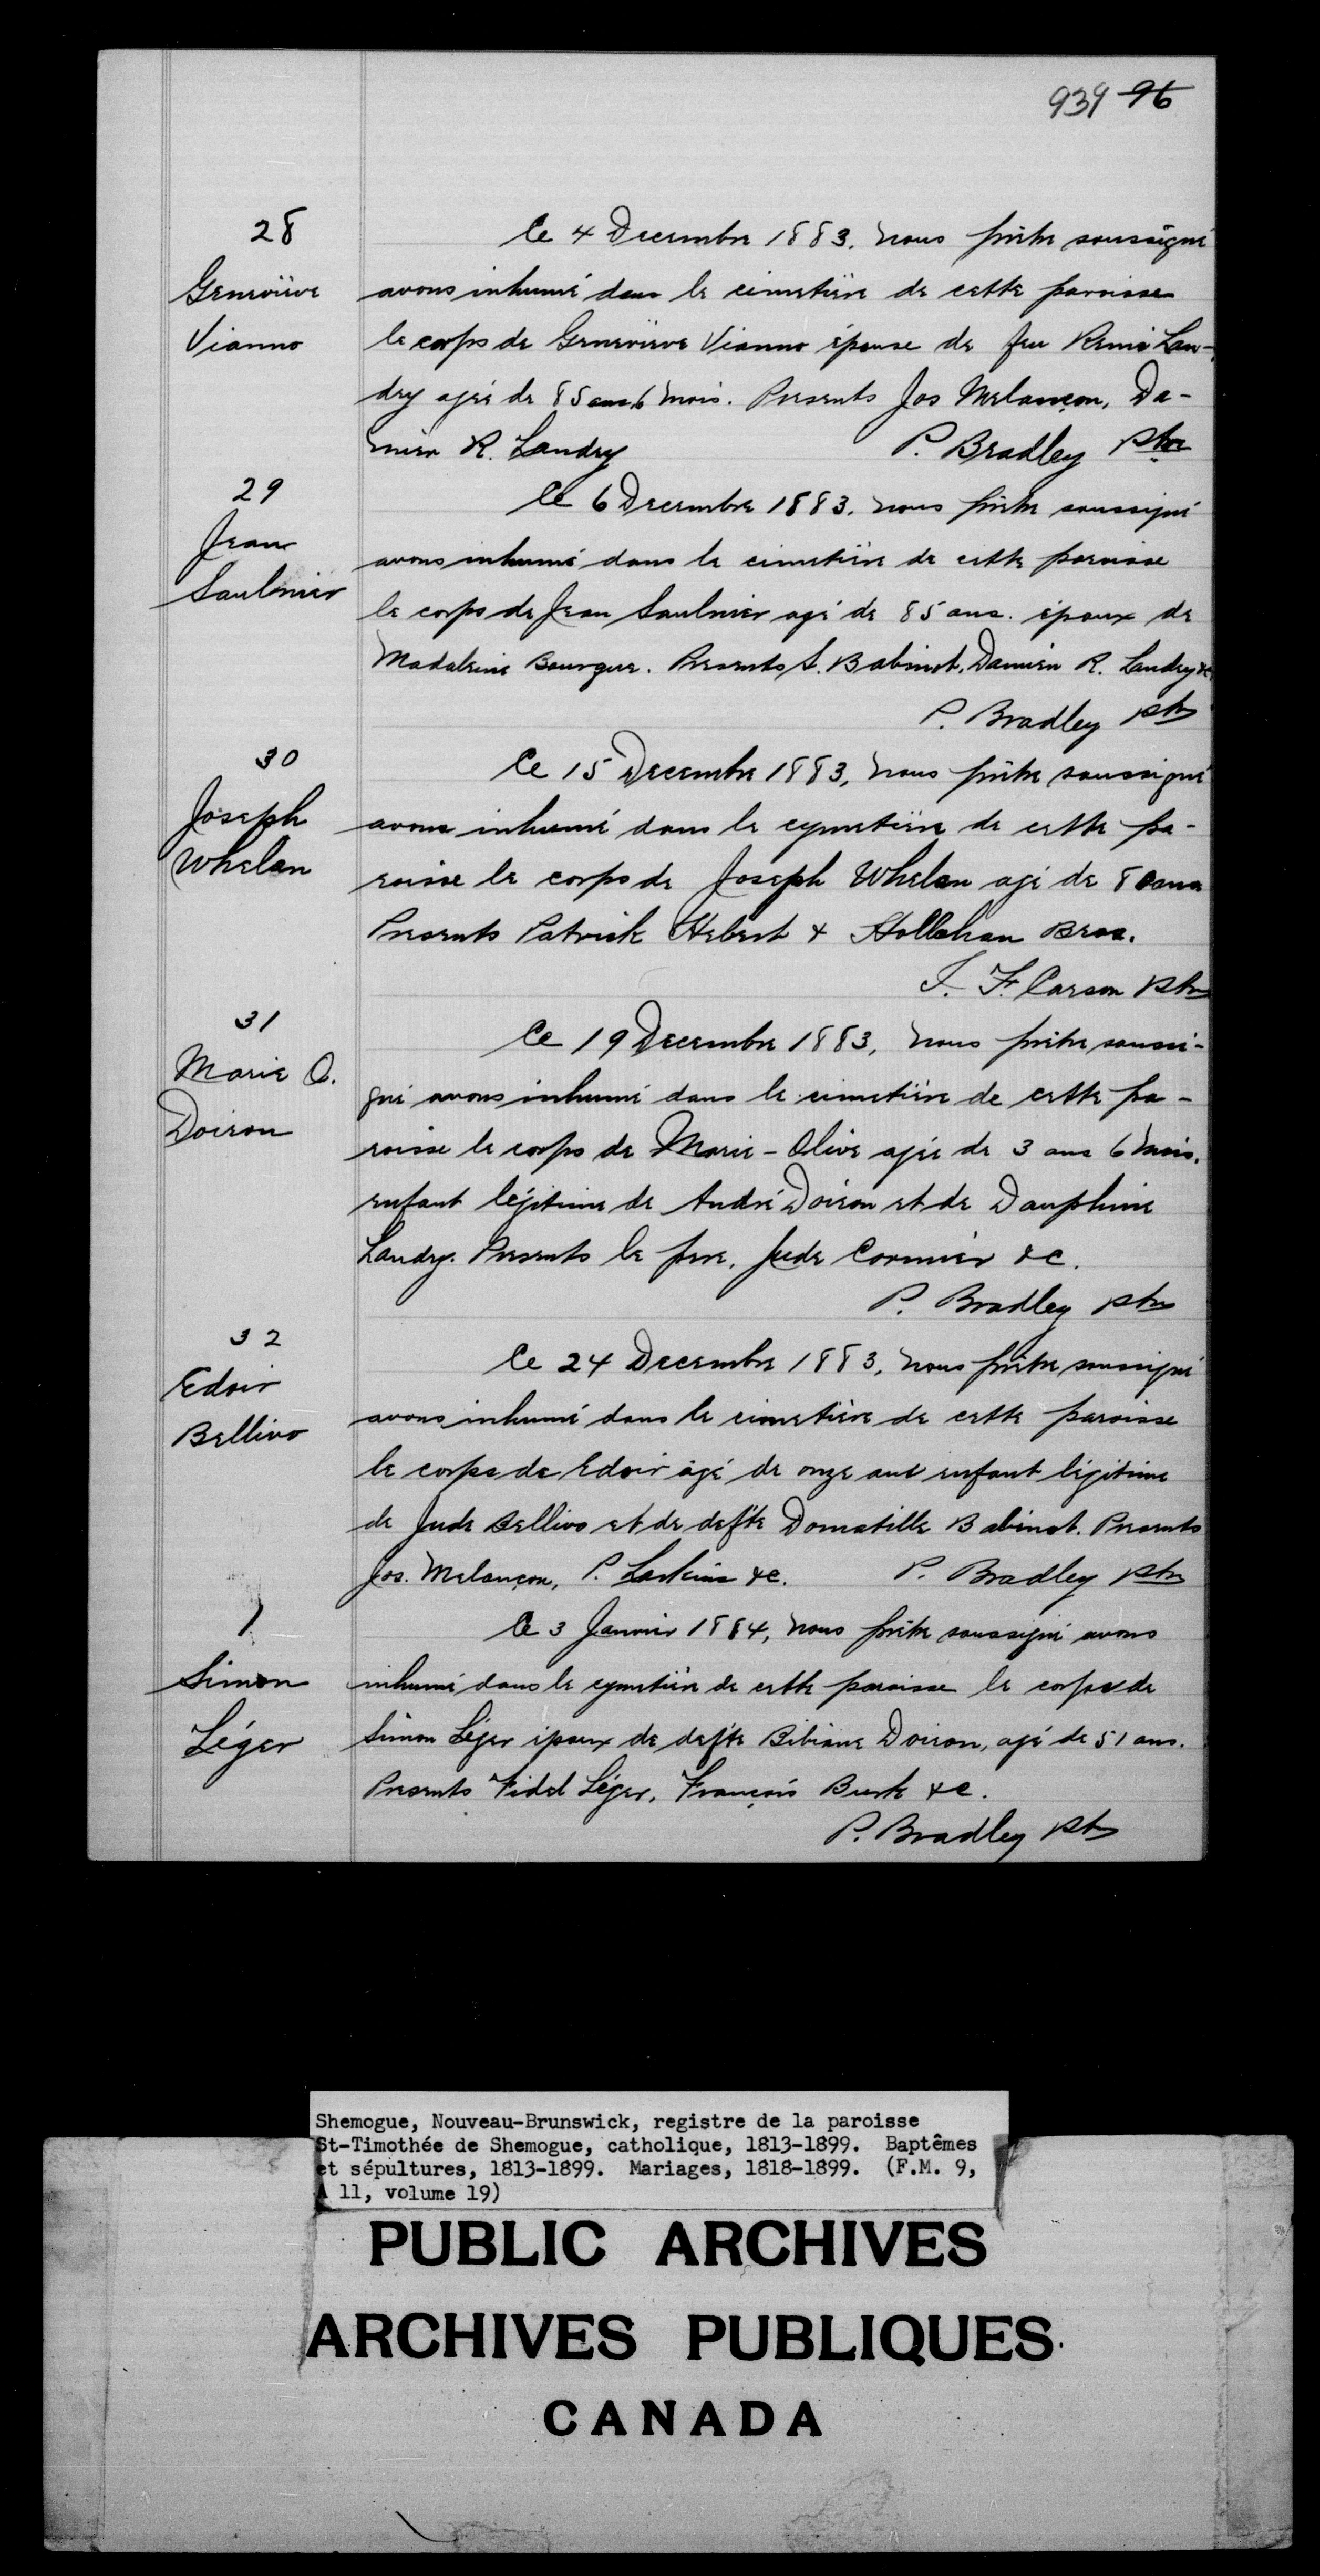 939 96
28
Geneviève
Vianno
Ce 4 Decembre 1883, nous prêtre soussigné
avons inhumé dans le cimetière de cette paroisse
le corps de Geneviève Vianno épouse de feu Remi Lan-
dry agée de 85 ans 6 mois. Presents Jos Melançon, Da-
mien R. Landry P. Bradley Ptre
29
Jean
Saulnier
Ce 6 Decembre 1883, nous prêtre soussigné
avons inhumé dans le cimetière de cette paroisse
le corps de Jean Saulnier agé de 85 ans. époux de
Madeleine Bourque. Presents S. Babinot, Damien R. Landry &c.
P. Bradley ptre
30
Joseph
Whelan
Ce 15 Decembre 1883, nous prêtre soussigné
avons inhumé dans le cymetière de cette pa-
roisse le corps de Joseph Whelan agé de 80 ans
Presents Patrick Hebert & Hollahan Bros.
J. F. Carson ptre
31
Marie O.
Doiron
Ce 19 Decembre 1883, nous prêtre soussi-
gné avons inhumé dans le cimetière de cette pa-
roisse le corps de Marie-Olive agée de 3 ans 6 mois.
enfant légitime de André Doiron et de Dauphine
Landry. Presents le pere, Jude Cormier &c.
P. Bradley ptre
32
Edoir
Bellivo
Ce 24 Decembre 1883, nous prêtre soussigné
avons inhumé dans le cimetière de cette paroisse
le corps de Edoir âgé de onze ans enfant légitime
de Jude Bellivo et de defte Domatille Babinot. Presents
Jos. Melançon, P. Larkins &c. P. Bradley ptre
1
Simon
Léger
Ce 3 Janvier 1884, nous prêtre soussigné avons
inhumé dans le cymetière de cette paroisse le corps de
Simon Léger époux de defte Bibiane Doiron, agé de 51 ans.
Presents Fidel Léger, François Burk &c.
P. Bradley ptre
Shemogue, Nouveau-Brunswick, registre de la paroisse
St-Timothée de Shemogue, catholique, 1813-1899. Baptêmes
et sépultures, 1813-1899. Mariages, 1818-1899. (F.M. 9,
A 11, volume 19)
PUBLIC ARCHIVES
ARCHIVES PUBLIQUES
CANADA